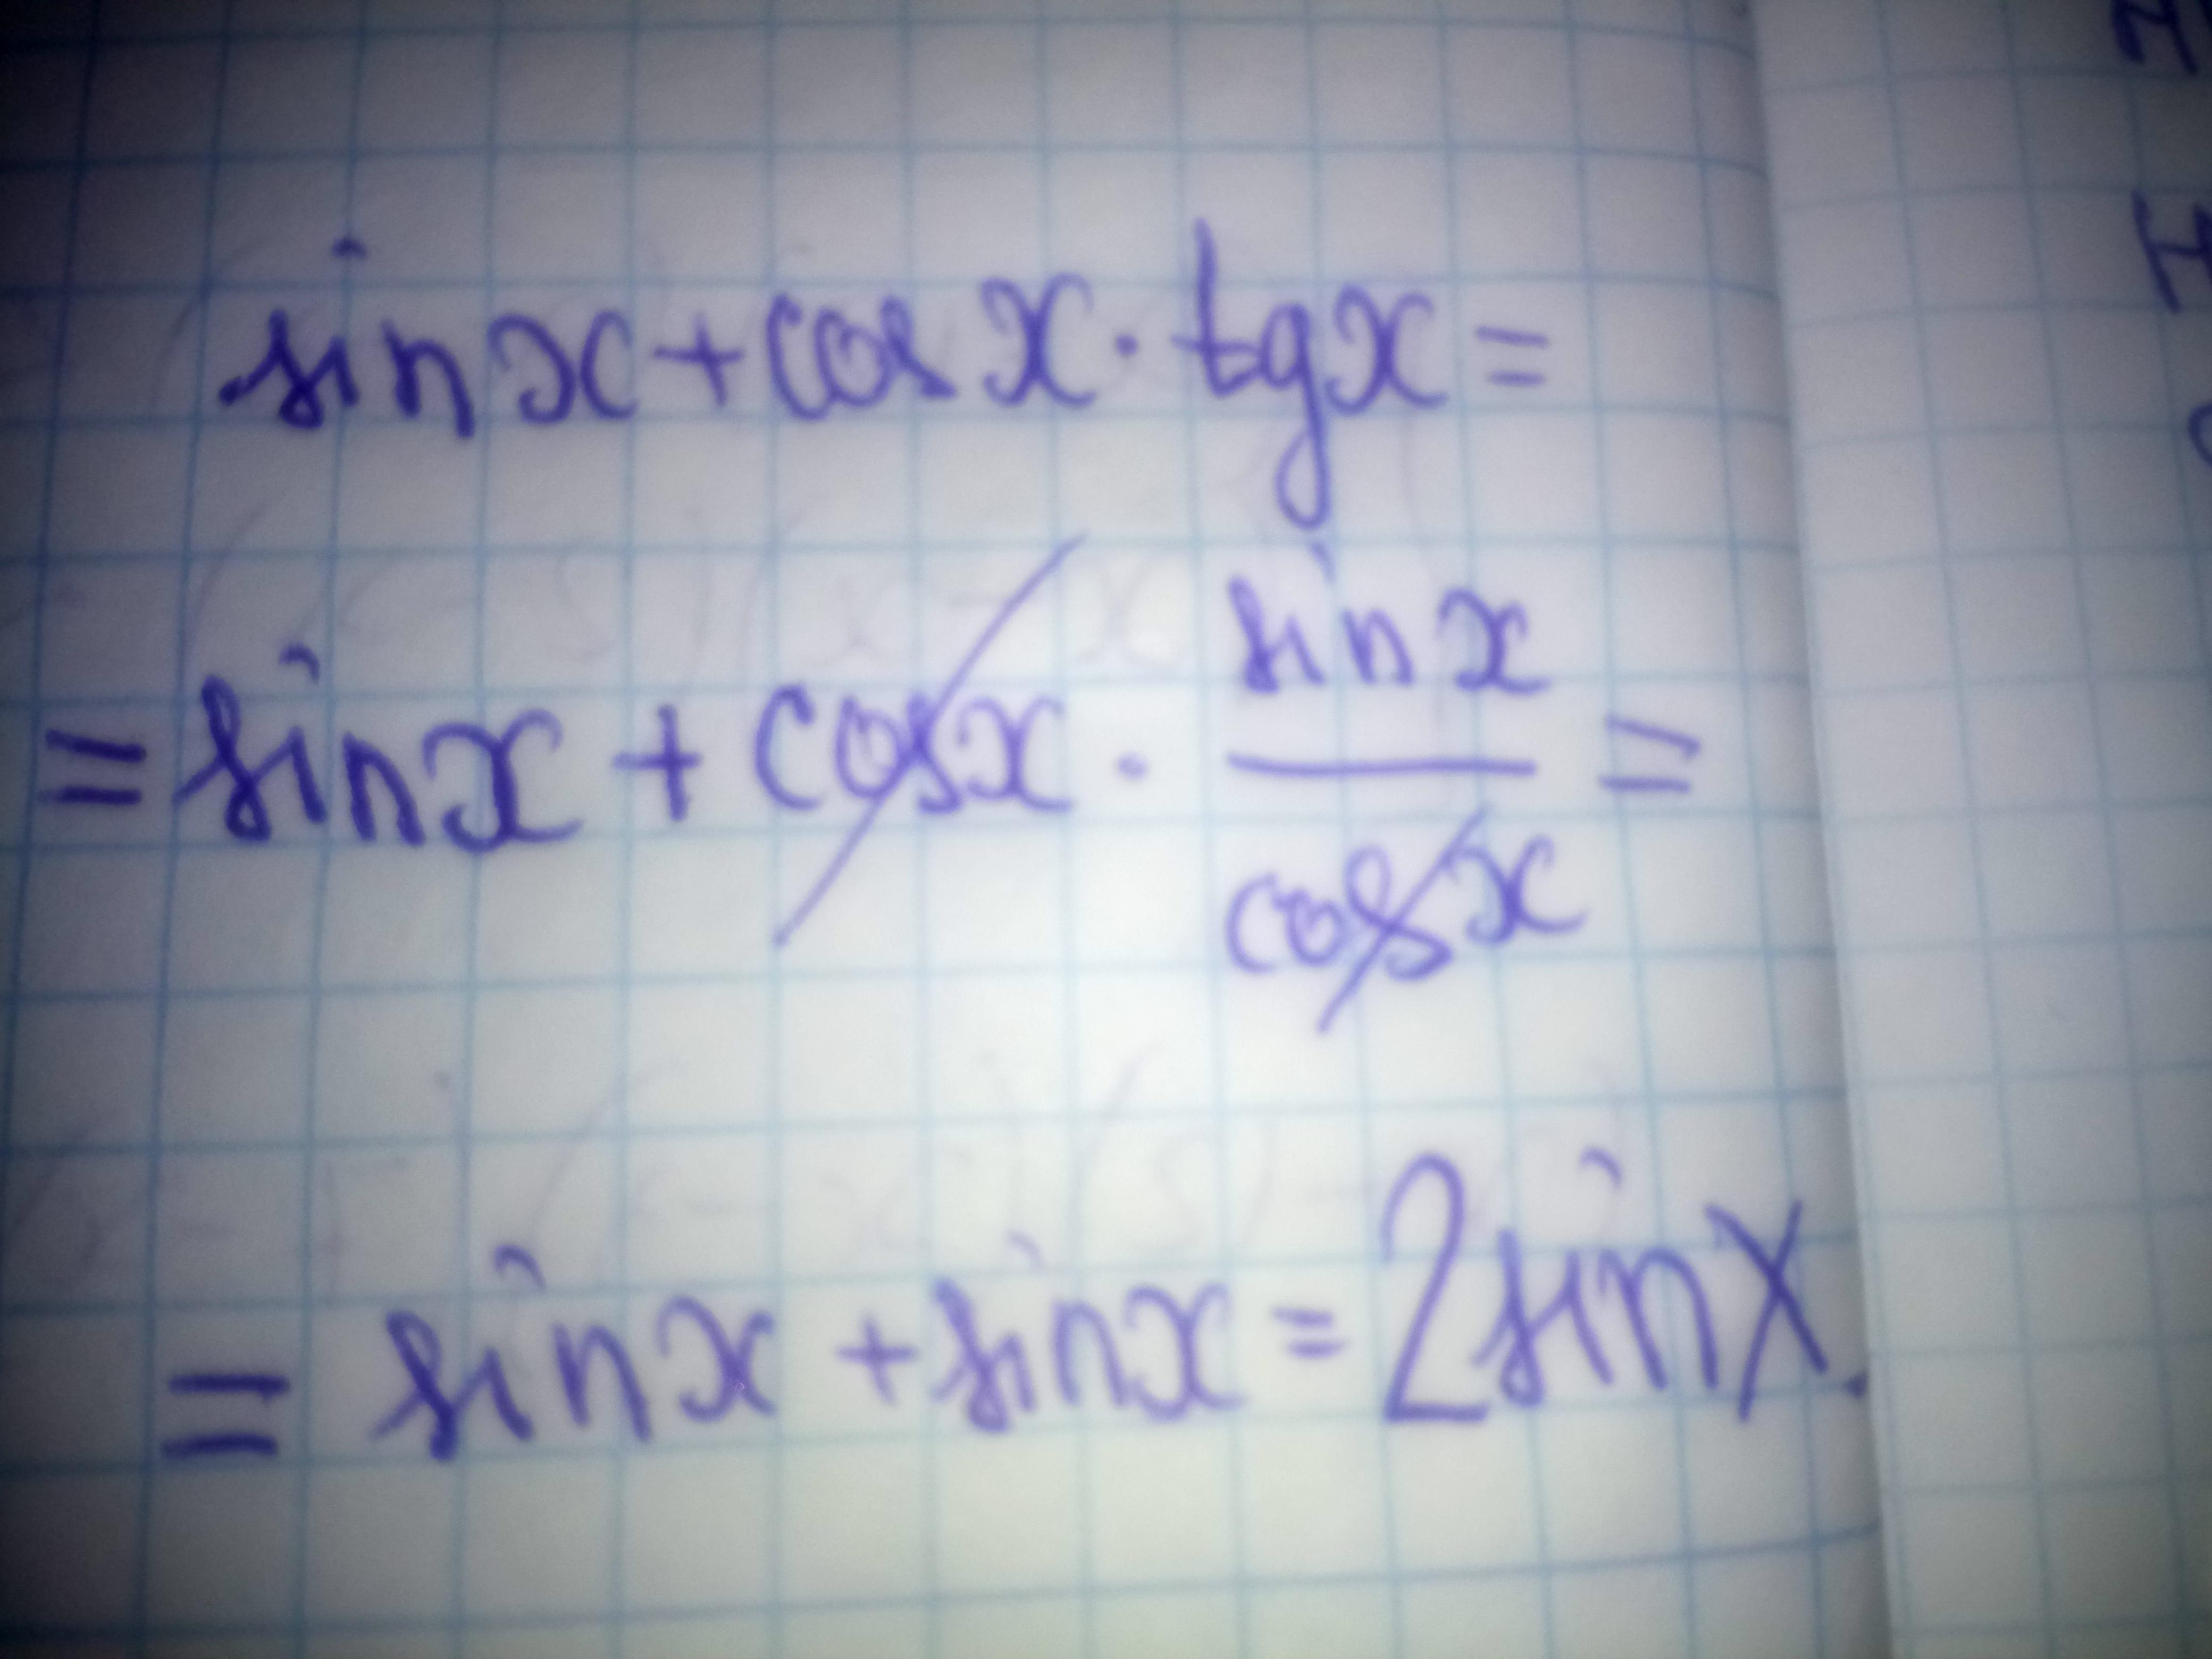 sin x + cos x · tg x =
= sin x + cos x · sin x / cos x =
= sin x + sin x = 2 sin x.